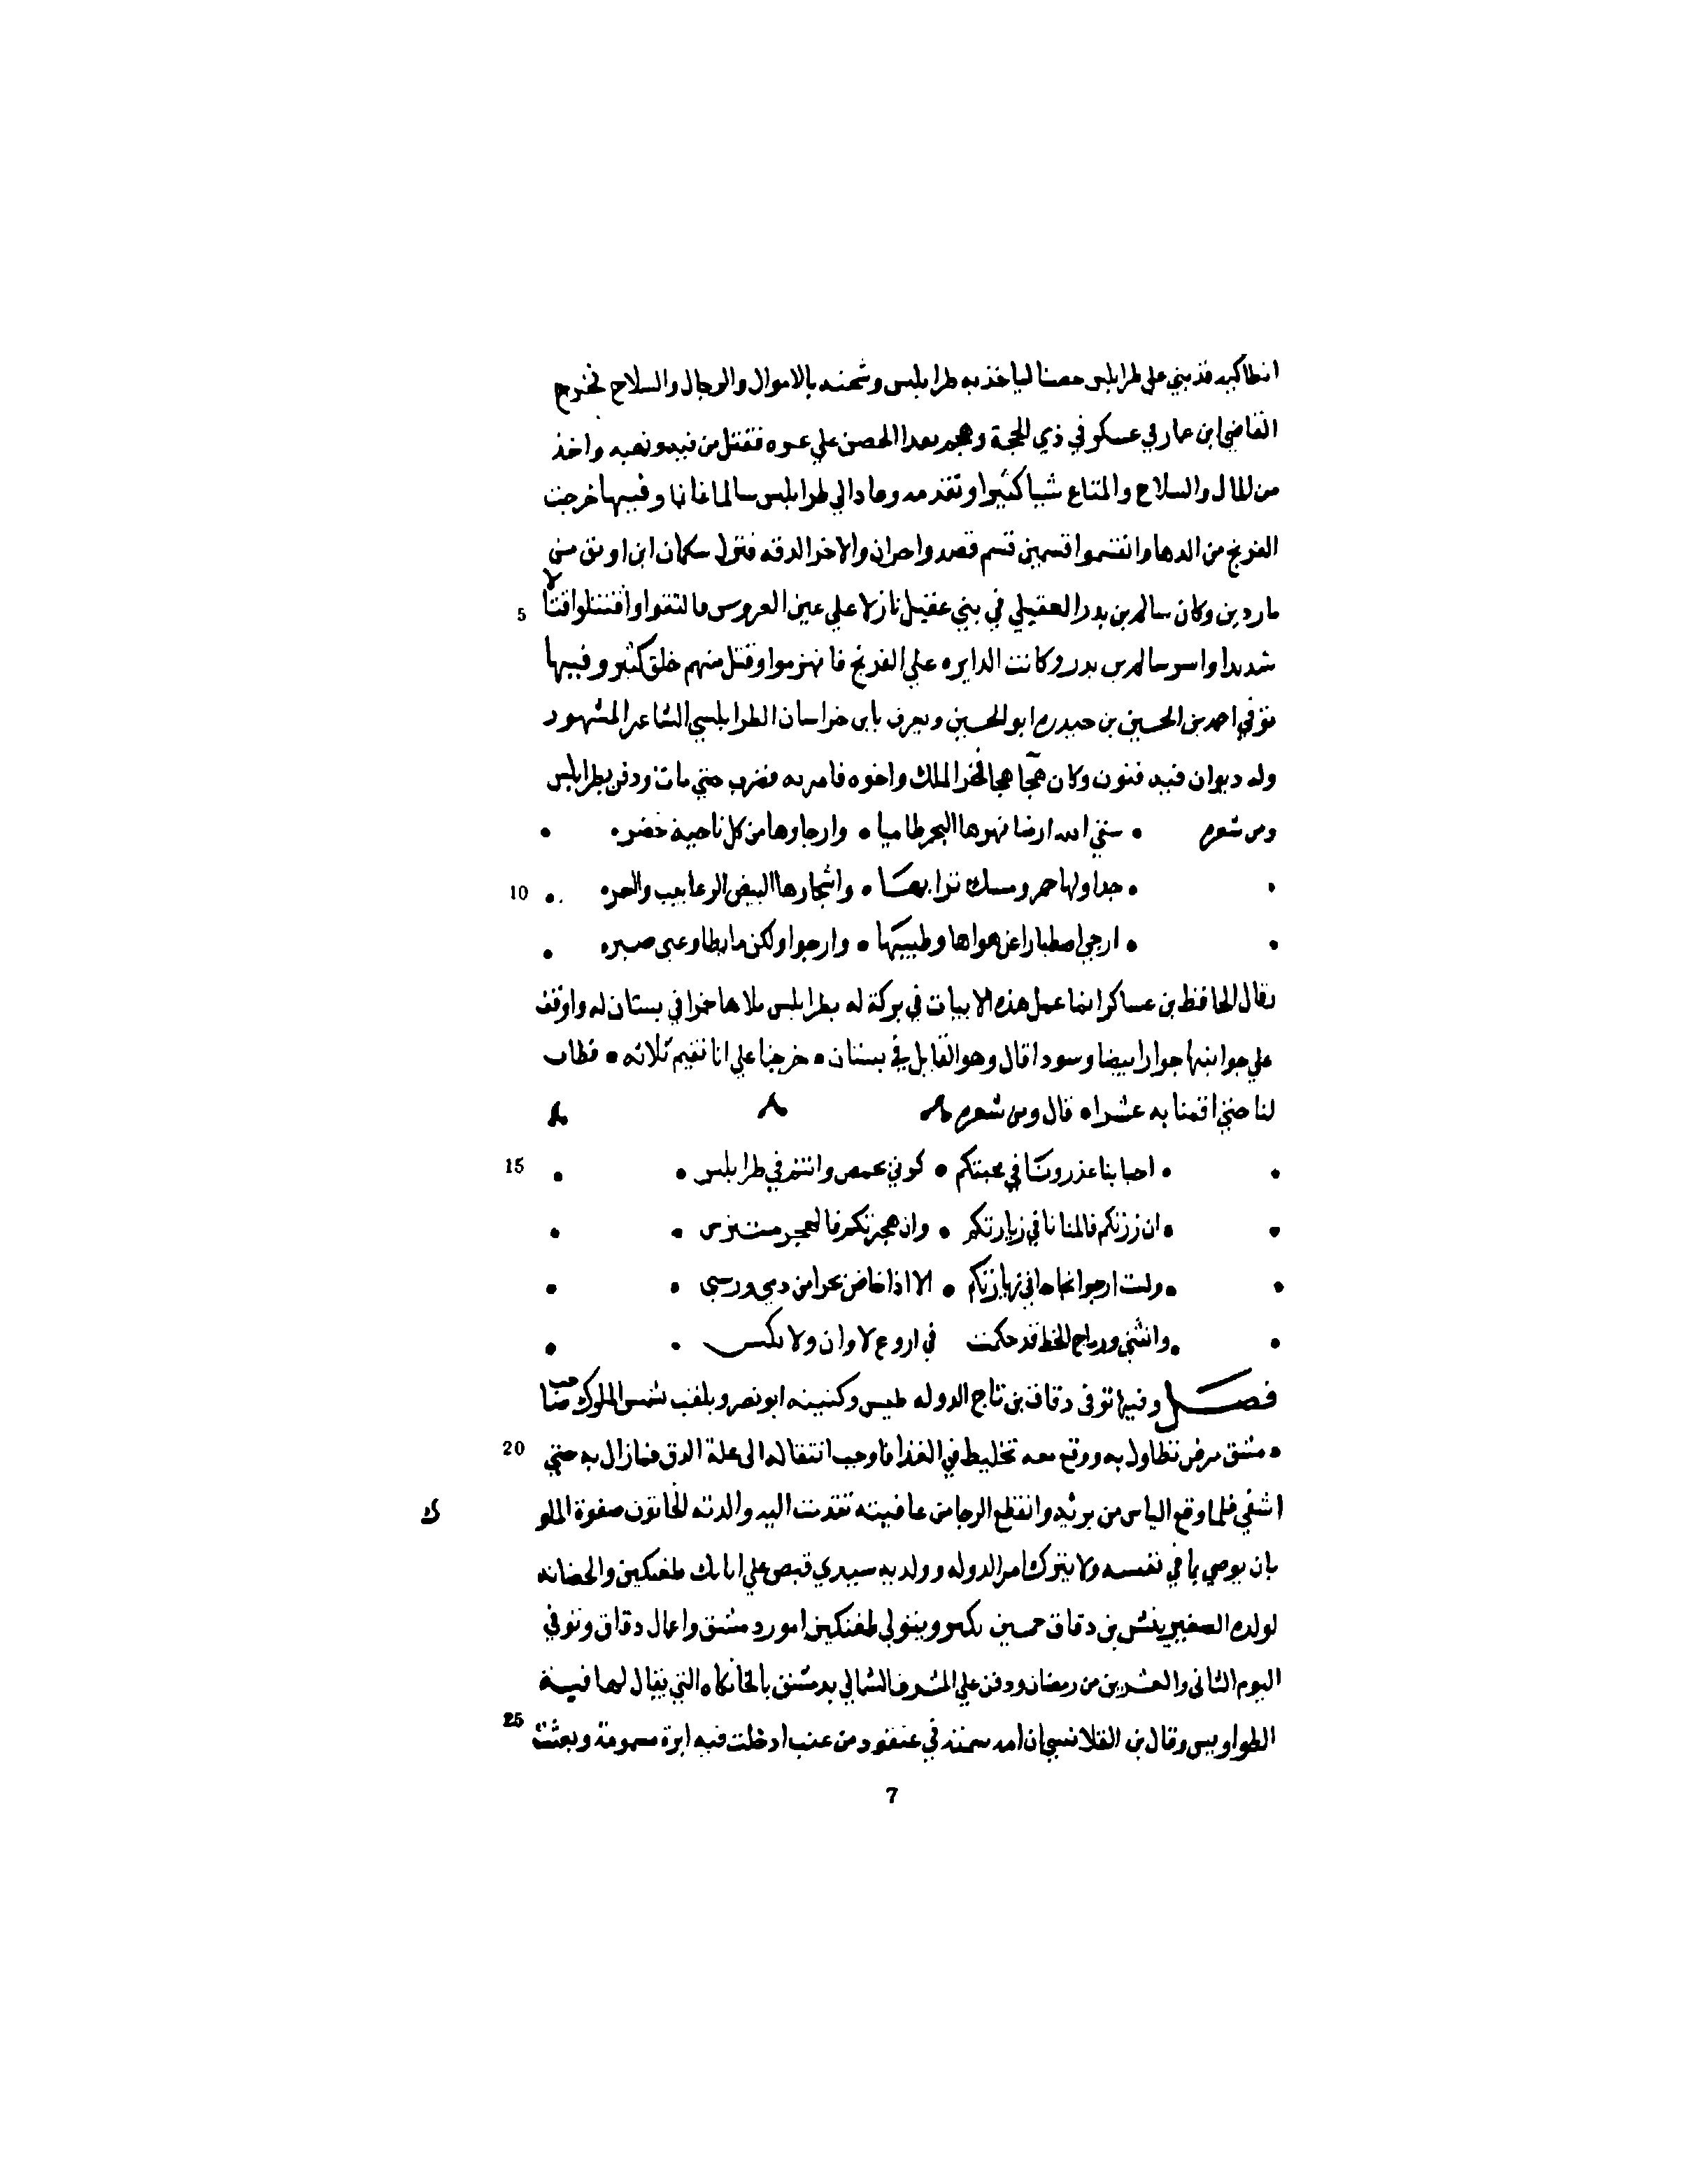 انطاكيه قد بني على طرابلس حصنا لياخذ به طرابلس وشحنه بالاموال والرجال والسلاح فخرج
القاضي ابن عمار في عسكره في ذي الحجة وهجم بعدا الحصن علي عره فقتل من فيه ونهبه واخذ
من المال والسلاح والمتاع شيا كثيرا وعاد الي طرابلس سالما غانما وفيها خرجت
الفرنج من الرها وانقسموا قسمين قسم قصدوا حران والاخر الرقه فنزل سكمان ابن ارتق من
ماردين وكان سالم بن بدر العقيلي في بني عقيل نازلا علي عين العروس فالتقوا واقتتلوا قتالا 5
شديدا واسر سالم بن بدر وكانت الدايره على الفرنج فانهزموا وقتل منهم خلق كثير وفيها
توفي احمد بن الحسين بن حيدره ابو الحسين ويعرف بابن خراسان الطرابلسي الشاعر المشهور
وله ديوان فيه فنون وكان هجا هجا فخر الملك واخوه فامر به فضرب حتي مات ودفن بطرابلس
ومن شعره • سقي الله ارضا نهرها البحر طاميا • وارجاوها من كل ناحية خضر •
• جداولها خمر ومسك ترابها • واشجارها البيض الرعابيب والحر • 10
• ارجي اصطبارا عن هواها وطيبها • وارجوا ولكن ما يطاوعني صبر •
قال الحافظ بن عساكر انما عمل هذه الابيات في بركة له بطرابلس ملاها خمرا في بستان له واوقف
علي جوانبها جوارا بيضا وسودا قال وهو القايل في بستان • خرجنا علي انا نقيم ثلاثه • فطاب
لنا حتي اقمنا به عشرا • قال ومن شعره
• احبابنا عذرونا في محبتكم • كوني بحمص وانتم في طرابلس • 15
• ان زرتكم فالمنايا في زيارتكم • وان هجرتكم فالهجر مفترس •
• ولست ارجوا نجاه في زيارتكم • الا اذا خاض بحرا من دمي فرسي •
• وانثني ورماح الخط قد حكمت في اروع لا وان ولا نكس •
فصل وفيها توفى دقاق بن تاج الدوله تتش وكنيته ابو نصر ويلقب شمس الملوك صاحب
دمشق مرض تطاول به ووقع معه تخليط في الغذا فاوجب انتقاله الى علة الدق فما زال به حتي 20
اشفي فلما وقع الياس من برئه وانقطع الرجا من عافيته تقدمت اليه والدته الخاتون صفوة الملوك
بان يوصي بما في نفسه ولا يترك امر الدوله وولده سدي فنص علي اتابك طغتكين والحضانه
لولده الصغير تتش بن دقاق حين يكبر ويتولي طغتكين امور دمشق واعمال دقاق وتوفي
اليوم الثاني والعشرين من رمضان ودفن علي الشرف الشمالي بدمشق بالخانكاه التي يقال لها قبة
الطواويس وقال بن القلانسي ان امه سمته في عنقود من عنب ادخلت فيه ابرة مسمومة وبعثت 25
7